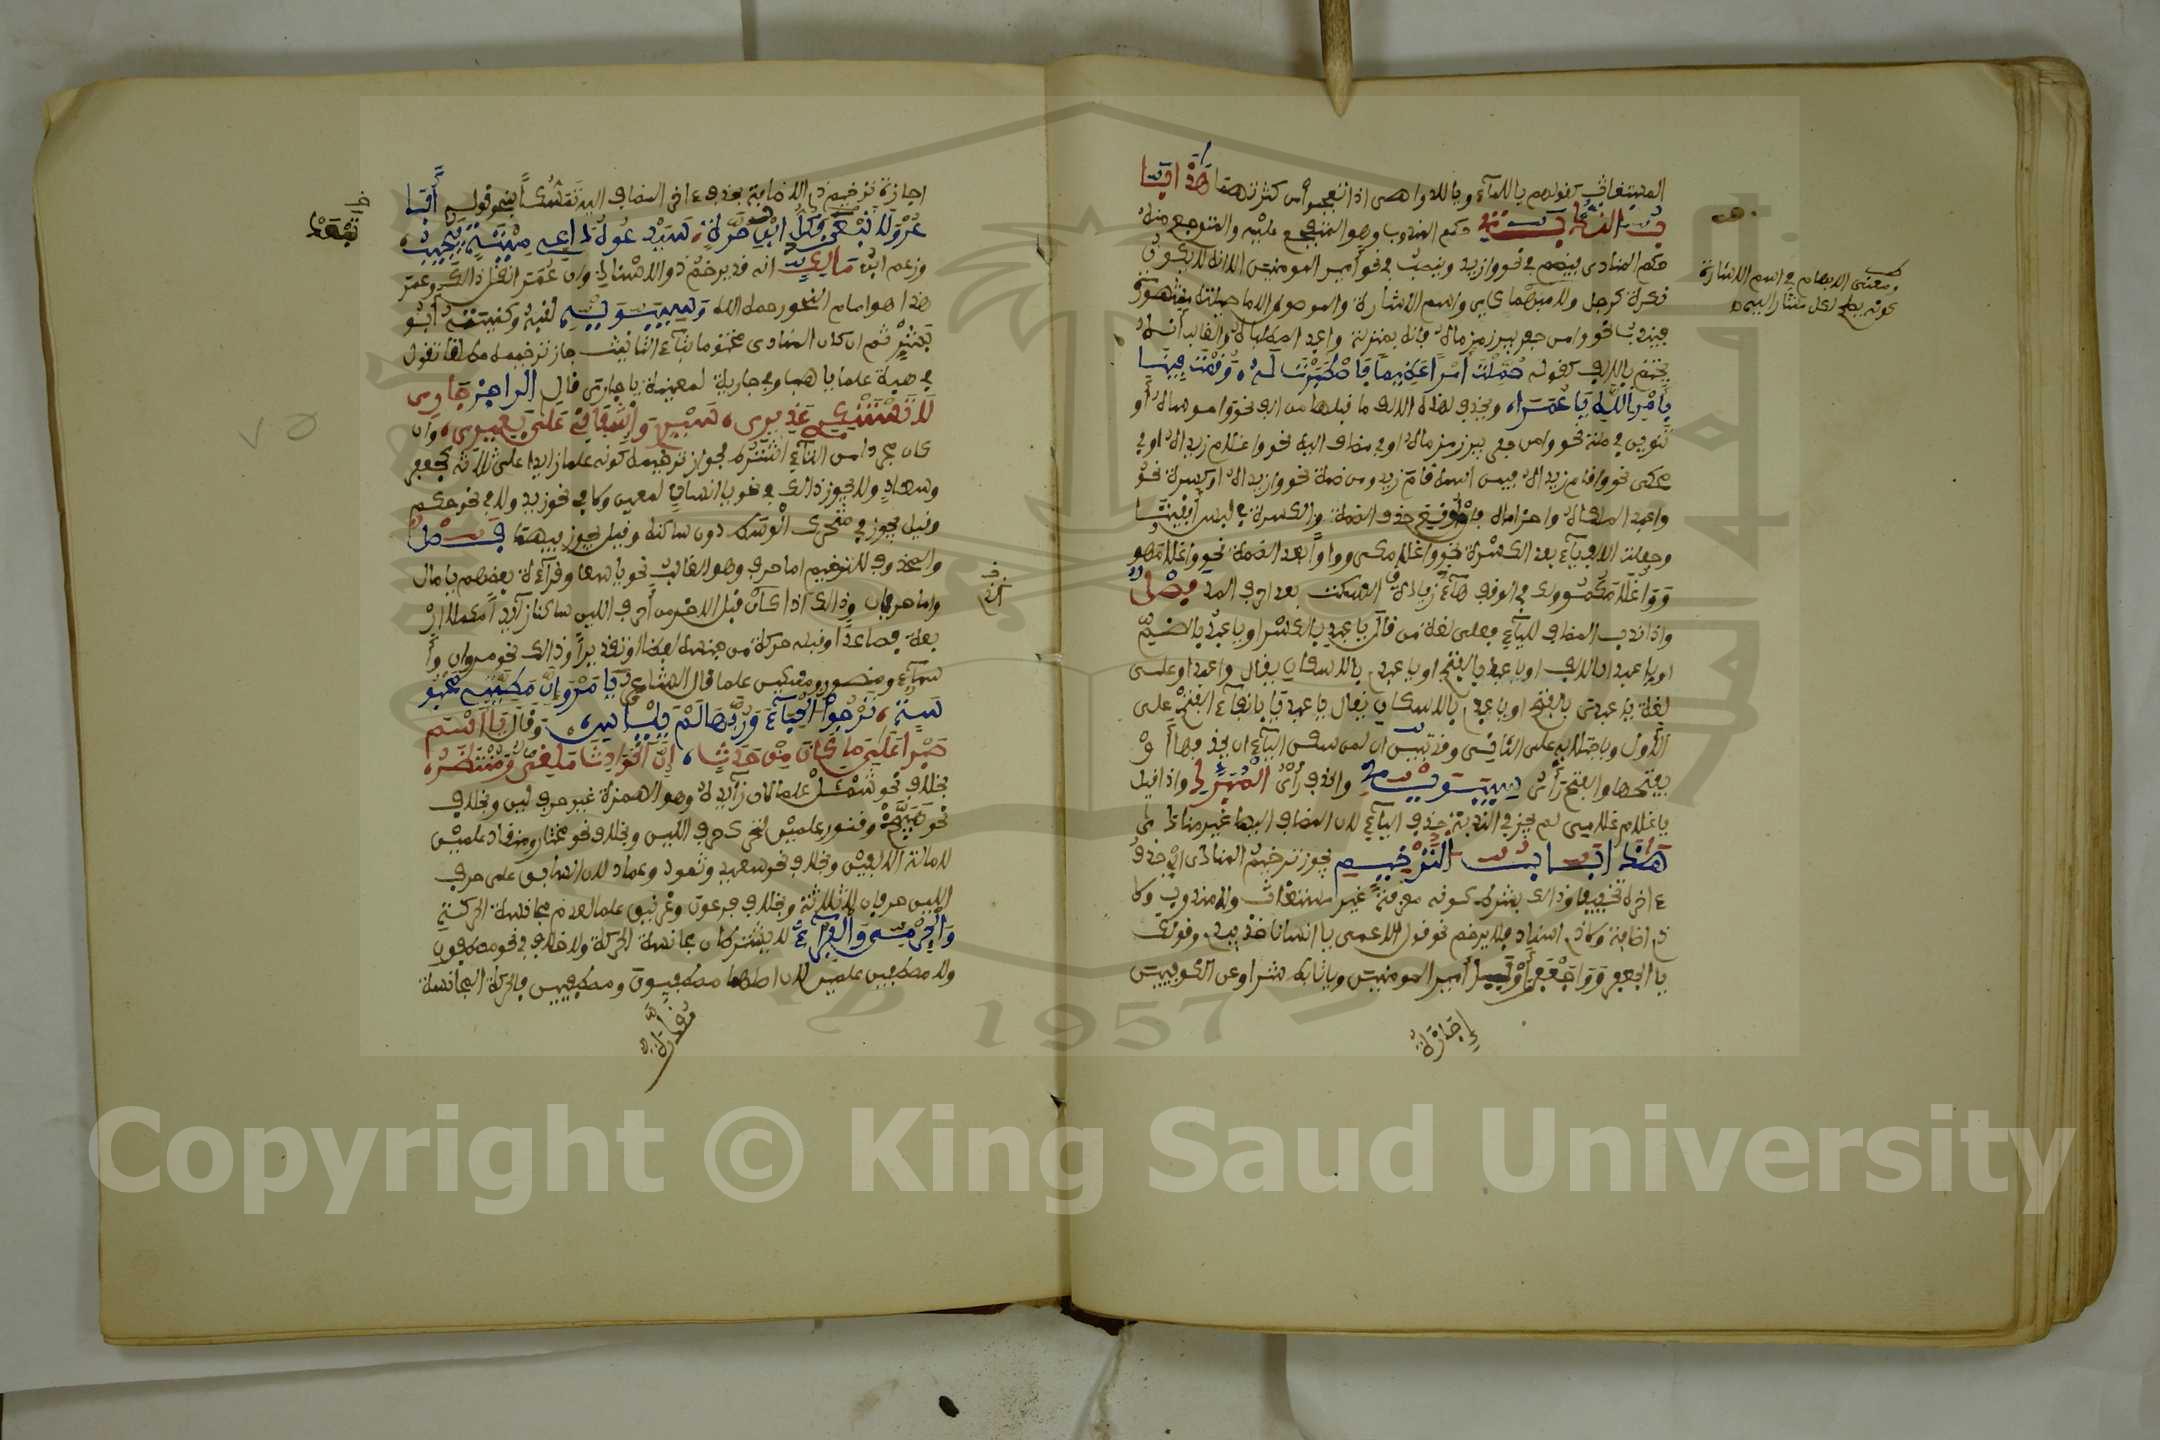 المستغاث كقولهم يا للماء ويا للدواهى اذا تعجبوا من كثرتهما هذا
باب الندبة حكم المندوب وهو المتفجع عليه والمتوجع منه
حكم المنادى فيضم فى نحو وا زيد وينصب فى نحو وا أمير المومنين الا انه لا يكون
نكرة كرجل ولا مبهما كأى واسم الاشارة والموصول الا ما صلته مشهورة
فيندب نحو وا من حفر بير زمزماه فانه بمنزلة وا عبد المطلباه والغالب ان
يختم بالالف كقوله حملت أمرا عظيما فاصطبرت له وقمت فيه
بأمر الله يا عمرا ويحذف لهذه الالف ما قبلها من الف نحو وا موساه أو
تنوين فى صلة نحو وا من حفر بير زمزماه او فى مضاف اليه نحو وا غلام زيداه او فى
محكى نحو وا قام زيداه فيمن اسمه قام زيد ومن ضمة نحو وا زيداه او كسرة نحو
وا عبد الملكاه وا حذاماه فان أوقع حذف الضمة والكسرة فى لبس أبقيتا
وجعلت الالف ياء بعد الكسرة نحو وا غلامكى وواوا بعد الضمة نحو وا غلامهو
ووا غلامكمو ولك فى الوقف هاء زيادة السكت بعد احرف المد فصل
واذا ندب المضاف للياء فعلى لغة من قال يا عبد بالكسر او يا عبد بالضم
او يا عبدا بالالف او يا عبد بالفتح او يا عبدى بالاسكان يقال وا عبدا وعلى
لغة يا عبدى بالفتح او يا عبدى بالاسكان يقال يا عبديا بابقاء الفتح على
الأول وباجتلابه على الثانى وقد تبين ان لمن سكن الياء ان يحذفها أو
يفتحها والفتح رأى سيبويه والحذف رأى المبرد واذا قيل
يا غلام غلامى لم يجز فى الندبة حذف الياء لان المضاف اليها غير منادى
هذا باب الترخيم يجوز ترخيم المنادى اى حذف
ءاخره تخفيفا وذالك بشرط كونه معرفة غير مستغاث ولا مندوب ولا
ذى اضافة ولا ذى اسناد فلا يرخم نحو قول الاعمى يا انسانا خذ بيدى وقولك
يا لجعفر ووا جعفراه ويا أمير المومنين ويا تأبط شرا وعن الكوفيين
إجازة
ومعنى الابهام فى اسم الاشارة
كونه يصلح لكل مشار اليه
اجازة ترخيم ذى الاضافة بحذف ءاخر المضاف اليه تمسكا بنحو قوله أبا
عرو لا تبعد فكل ابن حرة سيدعوه داعى ميتة فيجيب
وزعم ابن مالك انه قد يرخم ذو الاسناد وان عمرا نقل ذالك وعمرو
هذا هو امام النحو رحمه الله وسيبويه لقبه وكنيته أبو
بشر ثم ان كان المنادى مختوما بتاء التانيث جاز ترخيمه مطلقا تقول
فى هبة علما يا هب وفى جارية لمعينة يا جارى قال الراجز جارى
لا تستنكرى عذيرى سيرى وإشفاقى على بعيرى وان
كان مجردا من التاء اشترط لجواز ترخيمه كونه علما زايدا على ثلاثة كجعفر
وسعاد ولا يجوز ذالك فى نحو يا انسان لمعين ولا فى نحو زيد ولا فى نحو حكم
وقيل يجوز فى محرك الوسط دون ساكنه وقيل يجوز فيهما فصل
والمحذوف للترخيم اما حرف وهو الغالب نحو يا سعا وقراءة بعضهم يا مال
واما حرفان وذالك اذا كان قبل الاخر من أحرف اللين ساكنا زائدا مكملا أر
بعة فصاعدا وقبله حركة من جنسه لفظا او تقديرا وذالك نحو مروان وأ
سماء ومنصور ومسكين علما قال الشاعر يا مرو إن مطيتى محبو
سة ترجو الحباء وربها لم ييأس وقال يا اسم
صبرا على ما كان من حدث إن الحوادث ملقى ومنتظر
بخلاف نحو شمأل علما لان زائده وهو الهمزة غير حرف لين وبخلاف
نحو هبيخ وقنور علمين لتحرك حرف اللين وبخلاف نحو مختار ومنقاد علمين
لاصالة الالفين وبخلاف نحو سعيد وثمود وعماد لان السابق على حرف
اللين حرفان لا ثلاثة وبخلاف فرعون وغرنيق علما لعدم مجانسة الحركة
والجرمى والفراء لا يشترطان مجانسة الحركة ولا خلاف فى نحو مصطفون
ولا مصطفين علمين لان اصلهما مصطفيون ومصطفيين فالحركة المجانسة
مقدرة